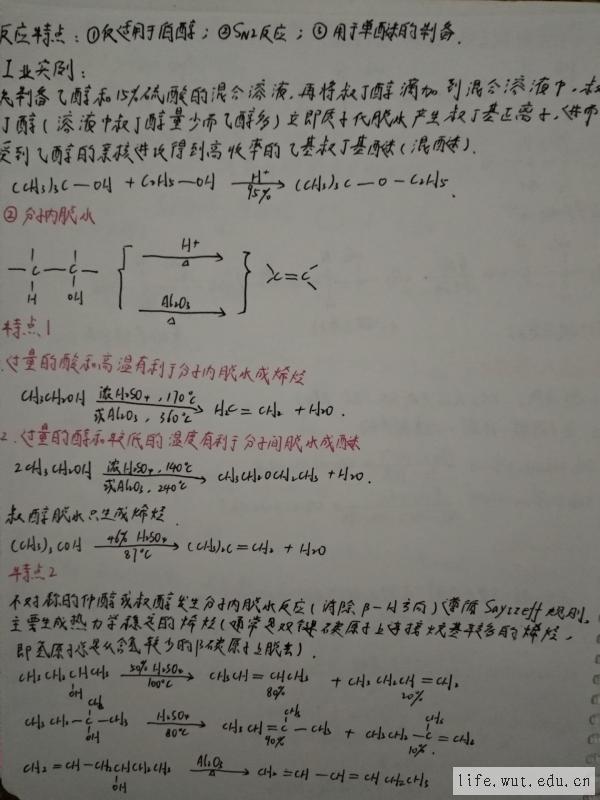 反应特点：①仅适用于伯醇；②SN2反应；③用于单醚的制备.
工业实例：
先制备乙醇和15%硫酸的混合溶液,再将叔丁醇滴加到混合溶液中,叔
丁醇(溶液中叔丁醇量少而乙醇多)立即质子化脱水产生叔丁基正离子,进而
受到乙醇的亲核进攻得到高收率的乙基叔丁基醚(混醚).
(CH3)3C—OH + C2H5—OH H+ 95% (CH3)3C—O—C2H5.
②分子内脱水
H+
—C—C— △ C=C
H OH Al2O3
△
特点1
过量的酸和高温有利于分子内脱水成烯烃
CH3CH2OH 浓H2SO4,170℃ 或Al2O3,360℃ H2C=CH2 + H2O.
2.过量的醇和较低的温度有利于分子间脱水成醚
2CH3CH2OH 浓H2SO4,140℃ 或Al2O3,240℃ CH3CH2OCH2CH3 + H2O.
叔醇脱水只生成烯烃.
(CH3)3COH 46% H2SO4 87℃ (CH3)2C=CH2 + H2O
特点2
不对称的仲醇或叔醇发生分子内脱水反应(消除β-H方向)遵循Sayzzeff规则,
主要生成热力学稳定的烯烃(通常是双键碳原子上连接烃基较多的烯烃,
即氢原子是从含氢较少的β碳原子上脱去).
CH3CH2CHCH3 50% H2SO4 100℃ CH3CH=CHCH3 + CH3CH2CH=CH2
OH 80% 20%
CH3 CH3 CH3
CH3CH2—C—CH3 H2SO4 80℃ CH3CH=C—CH3 + CH3CH2—C=CH2
OH 90% 10%
CH2=CH—CH2CHCH2CH3 Al2O3 △ CH2=CH—CH=CHCH2CH3
OH
life.wut.edu.cn